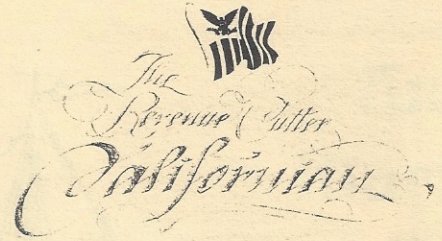 The
Revenue Cutter
Californian